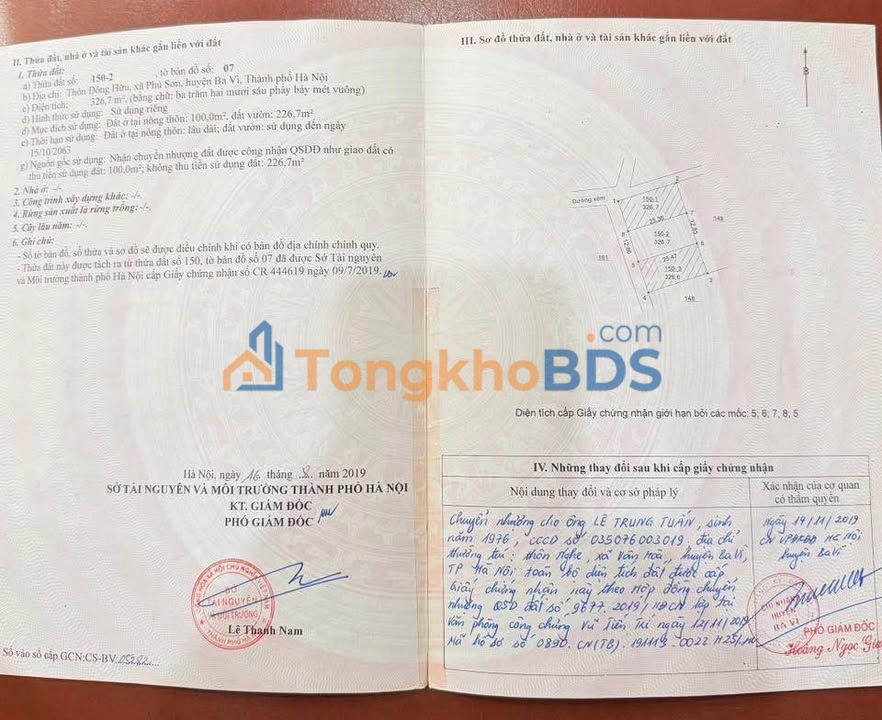 II. Thửa đất, nhà ở và tài sản khác gắn liền với đất
1. Thửa đất:
a) Thửa đất số: 150-2 , tờ bản đồ số: 07
b) Địa chỉ: Thôn Đông Hữu, xã Phú Sơn, huyện Ba Vì, Thành phố Hà Nội
c) Diện tích: 326,7 m², (bằng chữ: ba trăm hai mươi sáu phẩy bảy mét vuông)
d) Hình thức sử dụng: Sử dụng riêng
đ) Mục đích sử dụng: Đất ở tại nông thôn: 100,0m²; đất vườn: 226,7m²
e) Thời hạn sử dụng: Đất ở tại nông thôn: lâu dài; đất vườn: sử dụng đến ngày
15/10/2063
g) Nguồn gốc sử dụng: Nhận chuyển nhượng đất được công nhận QSDĐ như giao đất có
thu tiền sử dụng đất: 100,0m²; không thu tiền sử dụng đất: 226,7m²
2. Nhà ở: -/-.
3. Công trình xây dựng khác: -/-.
4. Rừng sản xuất là rừng trồng: -/-.
5. Cây lâu năm: -/-.
6. Ghi chú:
- Số tờ bản đồ, số thửa và sơ đồ sẽ được điều chỉnh khi có bản đồ địa chính chính quy.
- Thửa đất này được tách ra từ thửa đất số 150, tờ bản đồ số 07 đã được Sở Tài nguyên
và Môi trường thành phố Hà Nội cấp Giấy chứng nhận số CR 444619 ngày 09/7/2019.
Hà Nội, ngày 16 tháng 8 năm 2019
SỞ TÀI NGUYÊN VÀ MÔI TRƯỜNG THÀNH PHỐ HÀ NỘI
KT. GIÁM ĐỐC
PHÓ GIÁM ĐỐC
SỞ
TÀI NGUYÊN
VÀ MÔI TRƯỜNG
Lê Thanh Nam
Số vào sổ cấp GCN:CS-BV 05282
III. Sơ đồ thửa đất, nhà ở và tài sản khác gắn liền với đất
B
Đường xóm
1
2
150-1
326,7
25.36
7
149
8
150-2
326,7
12.86
12.85
6
151
5
25.47
150-3
326,6
4
148
TongkhoBDS.com
Diện tích cấp Giấy chứng nhận giới hạn bởi các mốc: 5, 6, 7, 8, 5
IV. Những thay đổi sau khi cấp giấy chứng nhận
Nội dung thay đổi và cơ sở pháp lý
Xác nhận của cơ quan
có thẩm quyền
Chuyển nhượng cho ông LÊ TRUNG TUẤN, sinh
năm 1976, CCCD số 035076003019, địa chỉ
thường trú: thôn Nghe, xã Vân Hoà, huyện Ba Vì,
TP Hà Nội; toàn bộ diện tích đất được cấp
Giấy chứng nhận này theo Hợp đồng chuyển
nhượng QSD đất số 9677.2019/HĐCN lập tại
Văn phòng công chứng Vũ Tiến Trí ngày 12/11/2019
Mã hồ sơ số 0890.CN(TB). 191113-0022
ngày 14/11/2019
CN VPĐKĐĐ Hà Nội
huyện Ba Vì
CHI NHÁNH
HUYỆN
BA VÌ
PHÓ GIÁM ĐỐC
Hoàng Ngọc